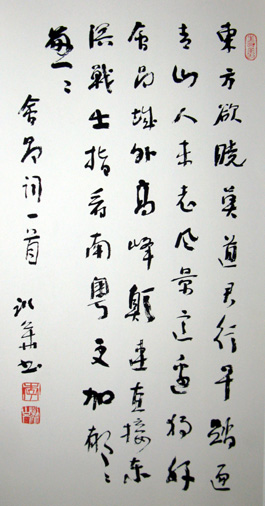 東方欲曉莫道君行早踏遍
青山人未老风景這边獨好
會昌城外高峰顛連直接东
溟戰士指看南粵更加郁〻
葱〻
會昌词一首
书